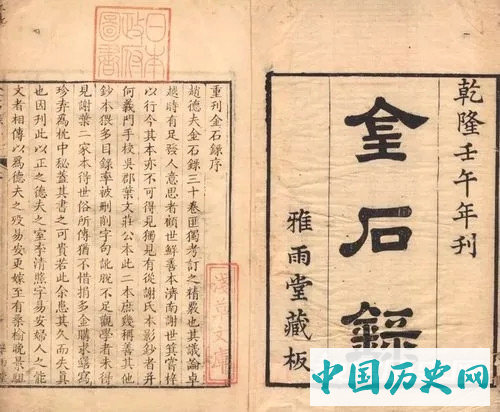 乾隆壬午年刊
金石錄
雅雨堂藏板
日本
政府
圖書
重刊金石錄序
趙德夫金石錄三十卷匪獨考訂之精覈也其議論卓
越時有足發人意思者顧世鮮善本濟南謝世箕嘗梓
以行今其本亦不可得見獨見有從謝氏本影鈔者并
何義門手校吳郡葉文莊公本此二本庶幾稱善其他
鈔本猥多目錄率被刪削字句訛脫不足觀學者未得
見謝葉二家本待世俗所傳猶不惜捐多金購求繕寫
珍弆為枕中秘蓋其書之可貴若此余患其久而失真
也因刊此以正之德夫之室李清照字易安婦人之能
文者相傳以爲德夫之歿易安更嫁至有桑榆晚景駔
淺草文庫
中国历史网